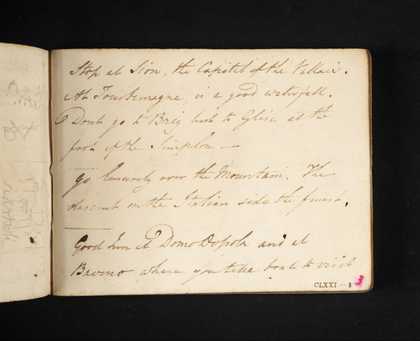 Stop at Sion, the Capital of the Vallais.
At Tourtemagne, is a good waterfall.
Dont go to Brig but to Glise at the
foot of the Simplon —
go leisurely over the Mountain. The
descent on the Italian side the finest.
Good Inn at Domo Dopola and at
Baveno where you take boat to visit
CLXXI — 1